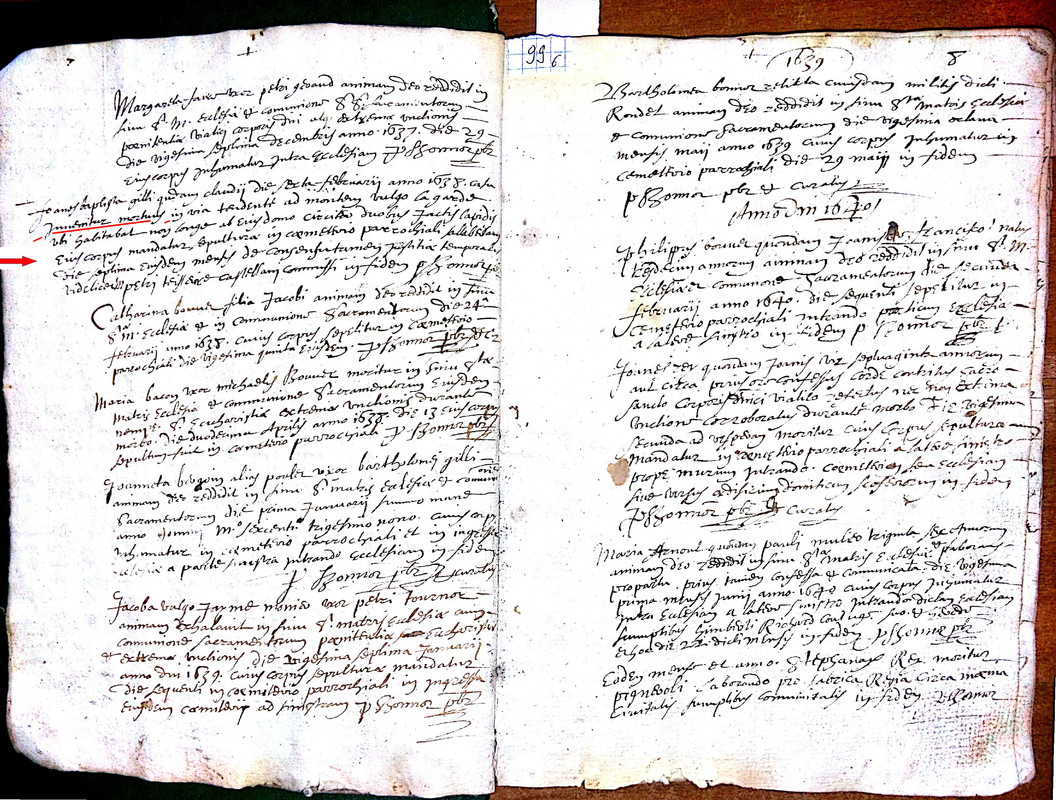 Margareta faure uxor petri geraud animam deo reddidit in
sinu S. M. Ecclesiæ & comunione SS. Sacramentorum
pœnitentiæ viatici corporis dni atq. extremæ unctionis
die vigesima septima decembris anno 1637. die 29
Eius corpus inhumatur intra Ecclesiam P Honnor pbr
Joanes baptista gilli quondam claudii die sexta februarii anno 1638. casu
Invenitur mortuus in via tendente ad montem vulgo la garde
ubi habitabat non longe ab eiusdomo circiter duobus jactis lapidis
Eius corpus mandatur sepulturæ in cœmeterio parrochiali
die septima eiusdem mensis de consensu tamen justitiæ temporalis
videlicet petri teissere castellani commissi in fidem P Honnor
Catharina bouver filia Jacobi animam deo reddidit in sinu
S. M. Ecclesiæ & in communione Sacramentorum die 24
februarii anno 1638. cuius corpus sepelitur in cœmeterio
parochiali die vigesima quinta eiusdem. P Honnor pbr
Maria bacon uxor michaelis Bouver moritur in sinu Stæ
Matris Ecclesiæ & communione Sacramentorum eiusdem
nempe S. Eucharistiæ extremæ unctionis durante
morbo. die duodecima Aprilis anno 1638. die 13 eius corpus
sepultum fuit in cœmeterio parrochiali P Honnor pbr
Joanneta brogoni alias poulet uxor bartholomei gilli
animam deo reddidit in sinu S. matris Ecclesiæ & comunione
Sacramentorum die prima Januarii summo mane
anno domini M. sexcenti trigesimo nono. cuius corpus
inhumatur in cœmeterio parrochiali et in ingressu
ecclesiæ a parte sinistra intrando Ecclesiam in fidem
P Honnor pbr & curatus
Jacoba vulgo Jaime monier uxor petri tournor
animam exhalavit in sinu S. matris ecclesiæ cum
comunione sacramentorum pœnitentiæ Eucharistiæ
& extremæ unctionis die vigesima septima Januarii
anno dni 1639. cuius corpus sepulturæ mandatur
die sequenti in cœmeterio parrochiali in ingressu
eiusdem cœmeterii ad sinistram P Honnor pbr
99
6
1639
8
Bartholomea bonnier relikta cuiusdam militis dicti
Rondet animam deo reddidit in sinu Stæ Matris Ecclesiæ
& comunione Sacramentorum die vigesima octava
mensis maii anno 1639 cuius corpus Inhumatur in
cœmeterio parrochiali die 29 maii in fidem
P Honnor pbr & Curatus
Anno Dni 1640
Philippus bouver quondam Joanis francisko natus
animam deo reddidit in sinu S. M.
Ecclesiæ & comunione Sacramentorum die secunda
februarii anno 1640. die sequenti sepelitur in
Cœmeterio parrochiali intrando porticum Ecclesiæ
a latere sinistro in fidem P Honnor pbr
Joanes rey quondam Joanis vir septuaginta annorum
aut circa, prius ore confessus corde contritus sacro
sancto Corporis dnici viatico refectus nec non extrema
Unctione corroboratus durante morbo die vigesima
secunda ad vesperam moritur cuius corpus sepulturæ
Mandatur in cœmeterio parrochiali a latere sinistro
prope murum intrando cœmeterium seu Ecclesiam
sive versus in fidem
P Honnor pbr & Curatus
Maria Arnoul quondam pauli mulier triginta sex annorum
animam deo reddidit in sinu Stæ Matris Ecclesiæ laborans
prius tamen confessa & comunicata die vigesima
prima mensis Junii anno 1640 cuius corpus Inhumatur
Intra Ecclesiam a latere sinistro intrando dictam Ecclesiam
sumptibus humberti Richard coniugis suo & herede
& hoc die 22 dicti mensis in fidem P Honnor pbr
Eodem mense et anno. Stephanus Rey moritur
pigneroli laborando pro fabrica Regia circa mœnia
Civitatis sumptibus communitatis in fidem P Honnor